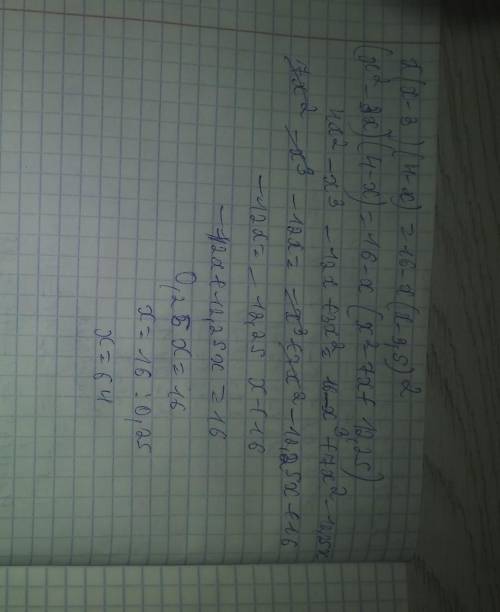 x(x-3)(4-x)=16-x(x-3,5)²
(x²-3x)(4-x)=16-x(x²-7x+12,25)
4x²-x³-12x+3x²=16-x³+7x²-12,25x
7x²-x³-12x=-x³+7x²-12,25x+16
-12x=-12,25x+16
-12x+12,25x=16
0,25x=16
x=16:0,25
x=64